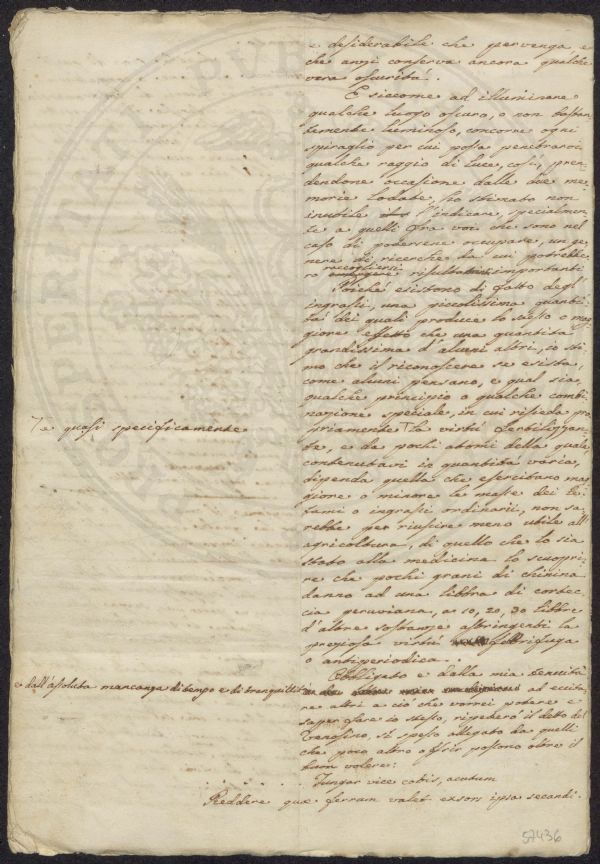 e desiderabile che pervenga, e
che anzi conserva ancora qualche
vera oscurità.
E siccome ad illuminare
qualche luogo oscuro, o non bastan-
temente luminoso, concorre ogni
spiraglio per cui possa penetrarvi
qualche raggio di luce, così, pren-
dendone occasione dalle due me-
morie lodate, ho stimato non
inutile indicare, specialmen-
te a quelli fra voi che sono nel
caso di potersene occupare, un ge-
nere di ricerche da cui potrebbe-
ro raccogliersi risultati importanti
Poiché esistono di fatto degli
ingrassi, una piccolissima quanti-
tà dei quali produce lo stesso o mag-
giore effetto che una quantità
grandissima d'alcuni altri, io sti-
mo che il riconoscere se esista,
come alcuni pensano, e qual sia,
qualche principio o qualche combi-
nazione speciale, in cui risieda pro-
e quasi specificamente
priamente la virtù fertilizzan-
te, e da pochi atomi della quale,
contenutavi in quantità varia,
dipenda quella che esercitano mag-
giore o minore le masse dei le-
tami o ingrassi ordinarii, non sa-
rebbe per riuscire meno utile all'
agricoltura, di quello che lo sia
stato alla medicina lo scuopri-
re che pochi grani di chinina
danno ad una libbra di cortec-
cia peruviana, a 10, 20, 30 libbre
d'altre sostanze astringenti la
preziosa virtù febbrifuga
o antiperiodica.
Obbligato e dalla mia tenuità
e dall'assoluta mancanza di tempo e di tranquillità
ad eccita-
re altri a ciò che vorrei potere e
saper fare io stesso, ripeterò il detto del
Venosino, sì spesso allegato da quelli
che poco altro offrir possono oltre il
buon volere:
. . . . . . Fungar vice cotis, acutum
Reddere quæ ferrum valet exsors ipsa secandi.
57436